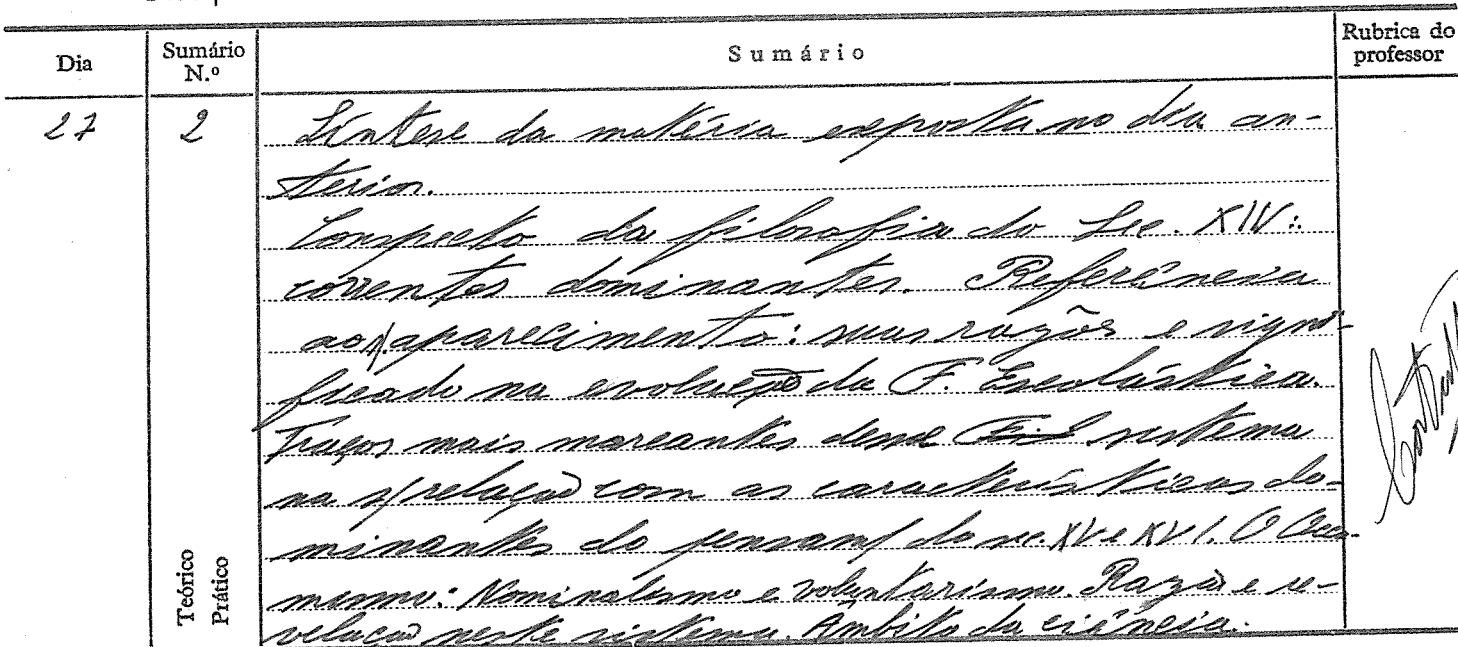 Dia
Sumário N.º
Sumário
Rubrica do professor
27
2
Síntese da matéria exposta no dia an-
terior.
Conspecto da filosofia do Sec. XIV:
correntes dominantes. Referência
ao aparecimento: suas razões e signi-
ficado na evolução da F. Escolástica.
Traços mais marcantes desse sistema
na s/ relação com as características do-
minantes do pensam/ do sec. XV e XVI. O
: Nominalismo e voluntarismo. Razão e re-
velação neste sistema. Âmbito da ciência.
Teórico
Prático